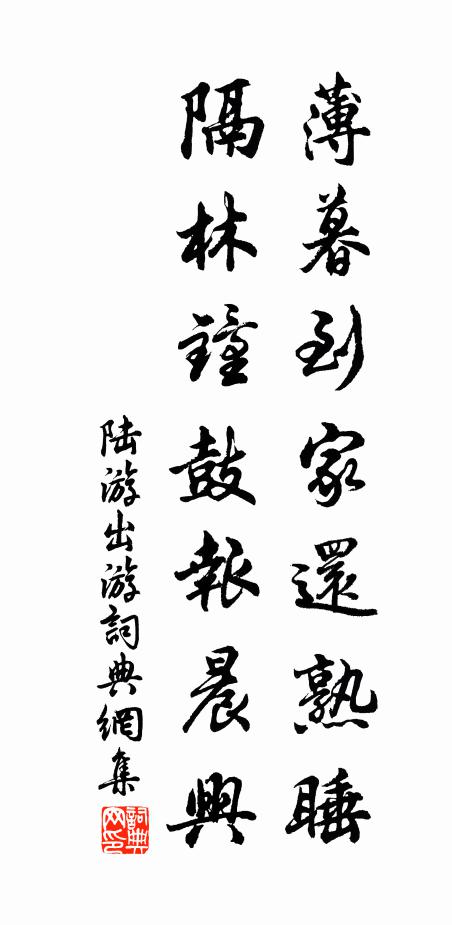 薄暮到家還熟睡
隔林鐘鼓報晨興
陆游出游詞典網集
詞典网印